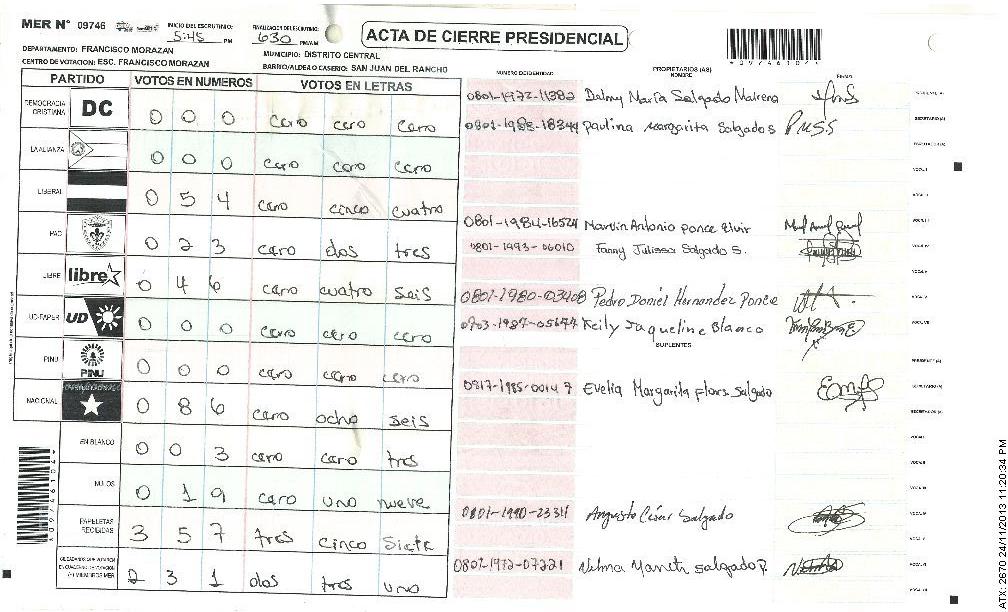 MER N° 09746 INICIO DEL ESCRUTINIO: 5:45 PM FINALIZACION DEL ESCRUTINIO: 630 PM/AM
ACTA DE CIERRE PRESIDENCIAL
DEPARTAMENTO: FRANCISCO MORAZAN MUNICIPIO: DISTRITO CENTRAL
CENTRO DE VOTACION: ESC. FRANCISCO MORAZAN BARRIO/ALDEA O CASERIO: SAN JUAN DEL RANCHO
PARTIDO VOTOS EN NUMEROS VOTOS EN LETRAS
DEMOCRACIA CRISTIANA DC 0 0 0 cero cero cero
LA ALIANZA 0 0 0 cero cero cero
LIBERAL 0 5 4 cero cinco cuatro
PAC 0 2 3 cero dos tres
LIBRE libre 0 4 6 cero cuatro seis
UD-FAPER UD 0 0 0 cero cero cero
PINU PINU 0 0 0 cero cero cero
NACIONAL 0 8 6 cero ocho seis
EN BLANCO 0 0 3 cero cero tres
NULOS 0 1 9 cero uno nueve
PAPELETAS RECIBIDAS 3 5 7 tres cinco siete
2 3 1 dos tres uno
NUMERO DE IDENTIDAD PROPIETARIOS (AS) NOMBRE FIRMA
0801-1972-11382 Delmy María Salgado Mairena PRESIDENTE (A)
0801-1988-18344 Paulina Margarita Salgado S P.M.S.S SECRETARIO (A)
ESCRUTADOR (A)
VOCAL I
VOCAL II
0801-1984-16524 Marvin Antonio Ponce Elvir VOCAL III
0801-1993-06010 Fanny Julissa Salgado S. VOCAL IV
0801-1980-03408 Pedro Daniel Hernandez Ponce VOCAL V
0703-1987-05644 Keily Jaqueline Blanco VOCAL VII
SUPLENTES
PRESIDENTE (A)
0817-1985-00147 Evelia Margarita Flors Salgado SECRETARIO (A)
0801-1990-23311 Augusto César Salgado
0801-1972-07221 VOCAL VI
ATX: 2670 24/11/2013 11:20:34 PM